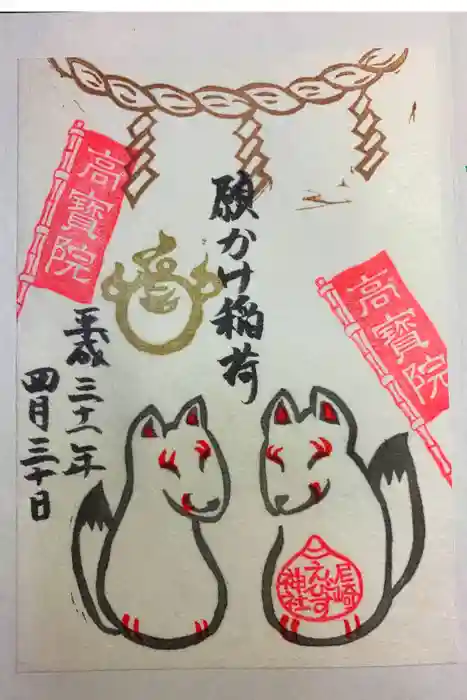 高寳院
願かけ稲荷
高寳院
平成三十一年
四月三十日
尼崎
えびす
神社